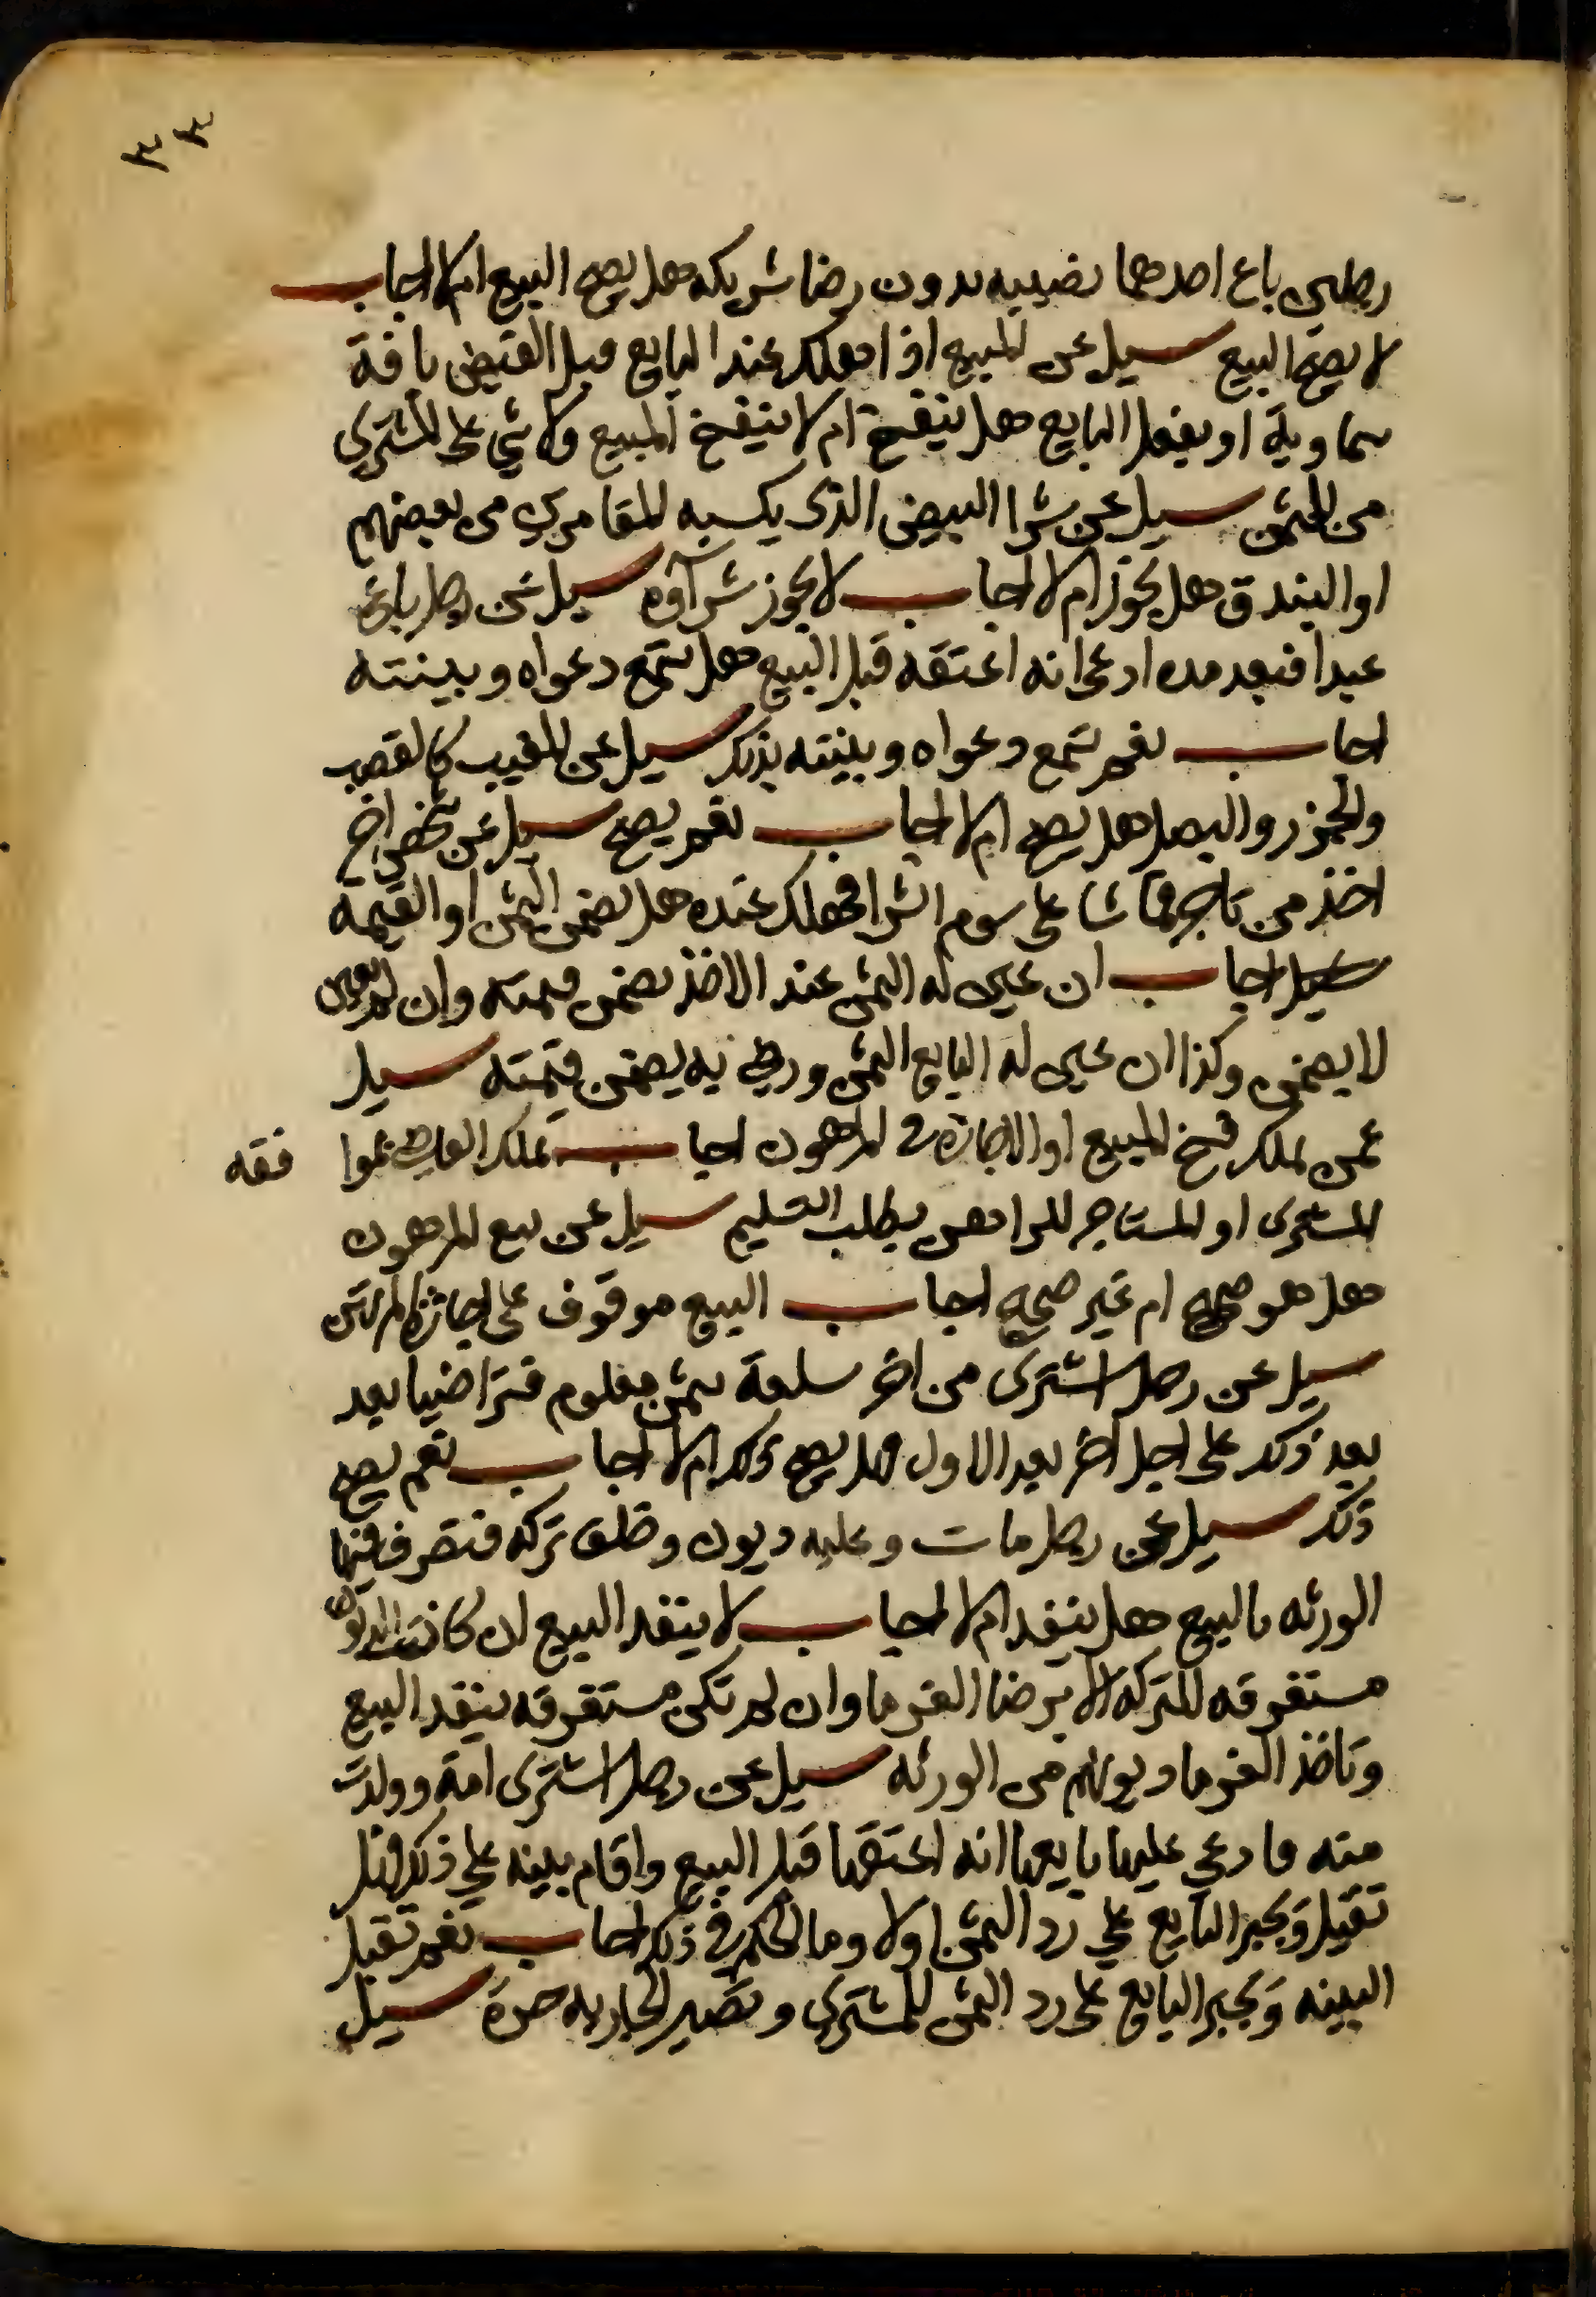 ٣٣
رجلين باع احدهما نصيبه بدون رضا شريكه هل يصح البيع ام لا اجاب
لا يصح البيع سيل عن المبيع اذا هلك عند البايع قبل القبض بافة
سماوية او بفعل البايع هل ينفسخ ام لا ينفسخ المبيع ولا شي على المشتري
من الثمن سيل عن شرا البيض الذى يكسبه المقامرين من بعضهم
او البندق هل يجوز ام لا اجاب لا يجوز شرآوه سيل عن رجل باع
عبدا فبعد مده ادعى انه اعتقه قبل البيع هل تسمع دعواه وبينته
اجاب نعم تسمع دعواه وبينته بذلك سيل عن المغيب كالقصب
والجزر والبصل هل يصح ام لا اجاب نعم يصح سيل عن شخص اخ
اخذ من تاجر قماشا على سوم الشرا فهلك عنده هل يضمن الثمن او القيمة
سيل اجاب ان عين له الثمن عند الاخذ يضمن قيمته وان لم يعين
لا يضمن وكذا ان عين له البايع الثمن ورضي به يضمن قيمته سيل
عمن يملك فسخ المبيع او الاجارة في المرهون اجاب يملك القاضي بنحوا
فقه
المشترى او المستاجر للراهن بطلب التسليم سيل عن بيع المرهون
هل هو صحيح ام غير صحيح اجاب البيع موقوف على اجازة المرتهن
سيل عن رجل اشترى من اخر سلعة بثمن معلوم فتراضيا بعد
بعد ذلك على اجل اخر بعد الاول فهل يصح ذلك ام لا اجاب نعم يصح
ذلك سيل عن رجل مات وعليه ديون وخلف تركه فتصرف فيها
الورثه بالبيع هل ينفد ام لا اجاب لا ينفد البيع ان كانت الديون
مستغرقه للتركه الا برضا الغرما وان لم تكن مستغرقه ينفد البيع
وتاخذ الغرما ديونهم من الورثه سيل عن رجل اشترى امة وولدت
منه فادعي عليها بايعها انه اعتقها قبل البيع واقام بينه علي ذلك فهل
تقبل ويجبر البايع علي رد الثمن اولا وما الحكم في ذلك اجاب نعم تقبل
البينه ويجبر البايع على رد الثمن للمشتري وتصير الجاريه حرة سيل